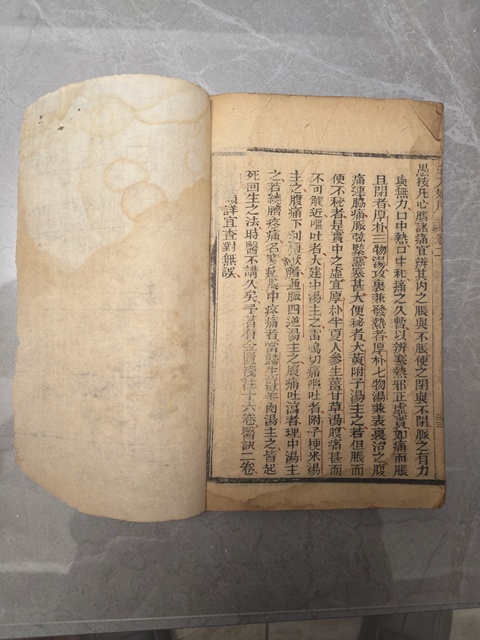 愚按凡心腹諸痛宜辨其內之脹與不脹便之閉與不閉脈之有力
與無力口中熱口中和痛之久暫以辨寒熱邪正虛實如痛而脹
且閉者厚朴三物湯攻裏兼發熱者厚朴七物湯兼表裏治之腹
痛連脇痛脈弦緊惡寒甚大便秘者大黃附子湯主之若但脹而
便不秘者是實中之虛宜厚朴半夏人參生薑甘草湯腹痛甚而
不可觸近嘔吐者大建中湯主之雷鳴切痛嘔吐者附子粳米湯
主之腹痛下利厥者通脈四逆湯主之腹痛吐瀉者理中湯主
之若繞臍疼痛名寒疝腹中疼痛者當歸生薑羊肉湯主之皆起
死回生之法時醫不講久矣予著有金匱淺注十六卷醫訣二卷
詳宜查對無誤